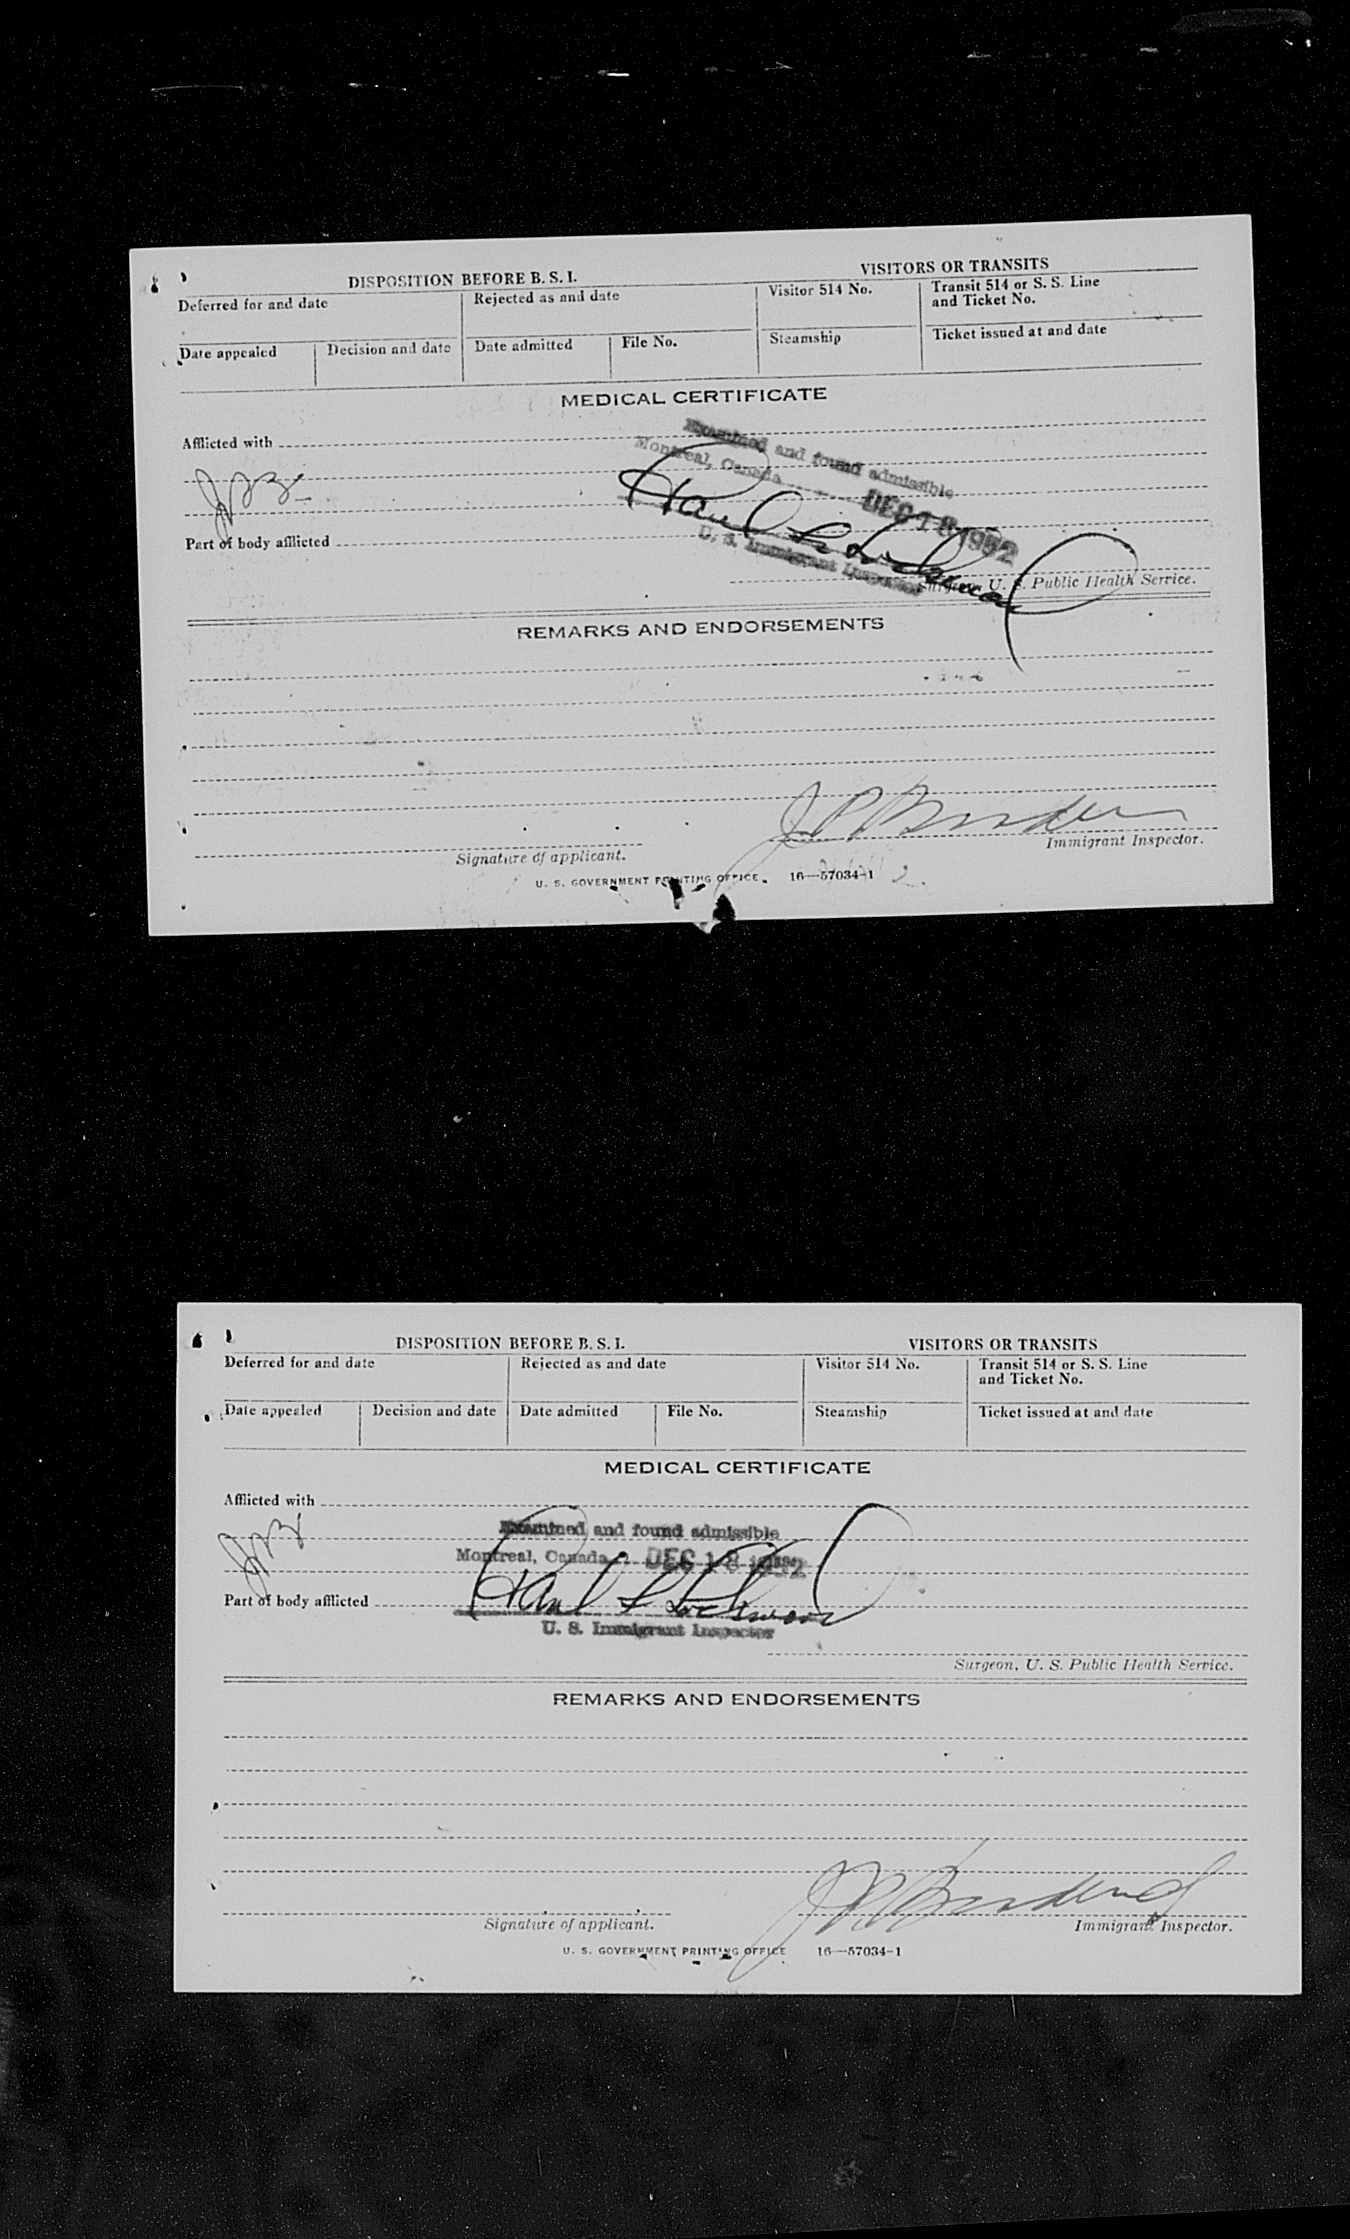 DISPOSITION BEFORE B. S. I.
VISITORS OR TRANSITS
Deferred for and date
Rejected as and date
Visitor 514 No.
Transit 514 or S. S. Line
and Ticket No.
Date appealed
Decision and date
Date admitted
File No.
Steamship
Ticket issued at and date
MEDICAL CERTIFICATE
Afflicted with
Examined and found admissible
Montreal, Canada
DEC 18 1952
Paul L Lockwood
Part of body afflicted
U. S. Immigrant Inspector
Surgeon, U. S. Public Health Service.
REMARKS AND ENDORSEMENTS
Signature of applicant.
Immigrant Inspector.
U. S. GOVERNMENT PRINTING OFFICE 16—57034-1
DISPOSITION BEFORE B. S. I.
VISITORS OR TRANSITS
Deferred for and date
Rejected as and date
Visitor 514 No.
Transit 514 or S. S. Line
and Ticket No.
Date appealed
Decision and date
Date admitted
File No.
Steamship
Ticket issued at and date
MEDICAL CERTIFICATE
Afflicted with
Examined and found admissible
Montreal, Canada DEC 18 1952
Paul L Lockwood
Part of body afflicted
U. S. Immigrant Inspector
Surgeon, U. S. Public Health Service.
REMARKS AND ENDORSEMENTS
Signature of applicant.
Immigrant Inspector.
U. S. GOVERNMENT PRINTING OFFICE 16—57034-1